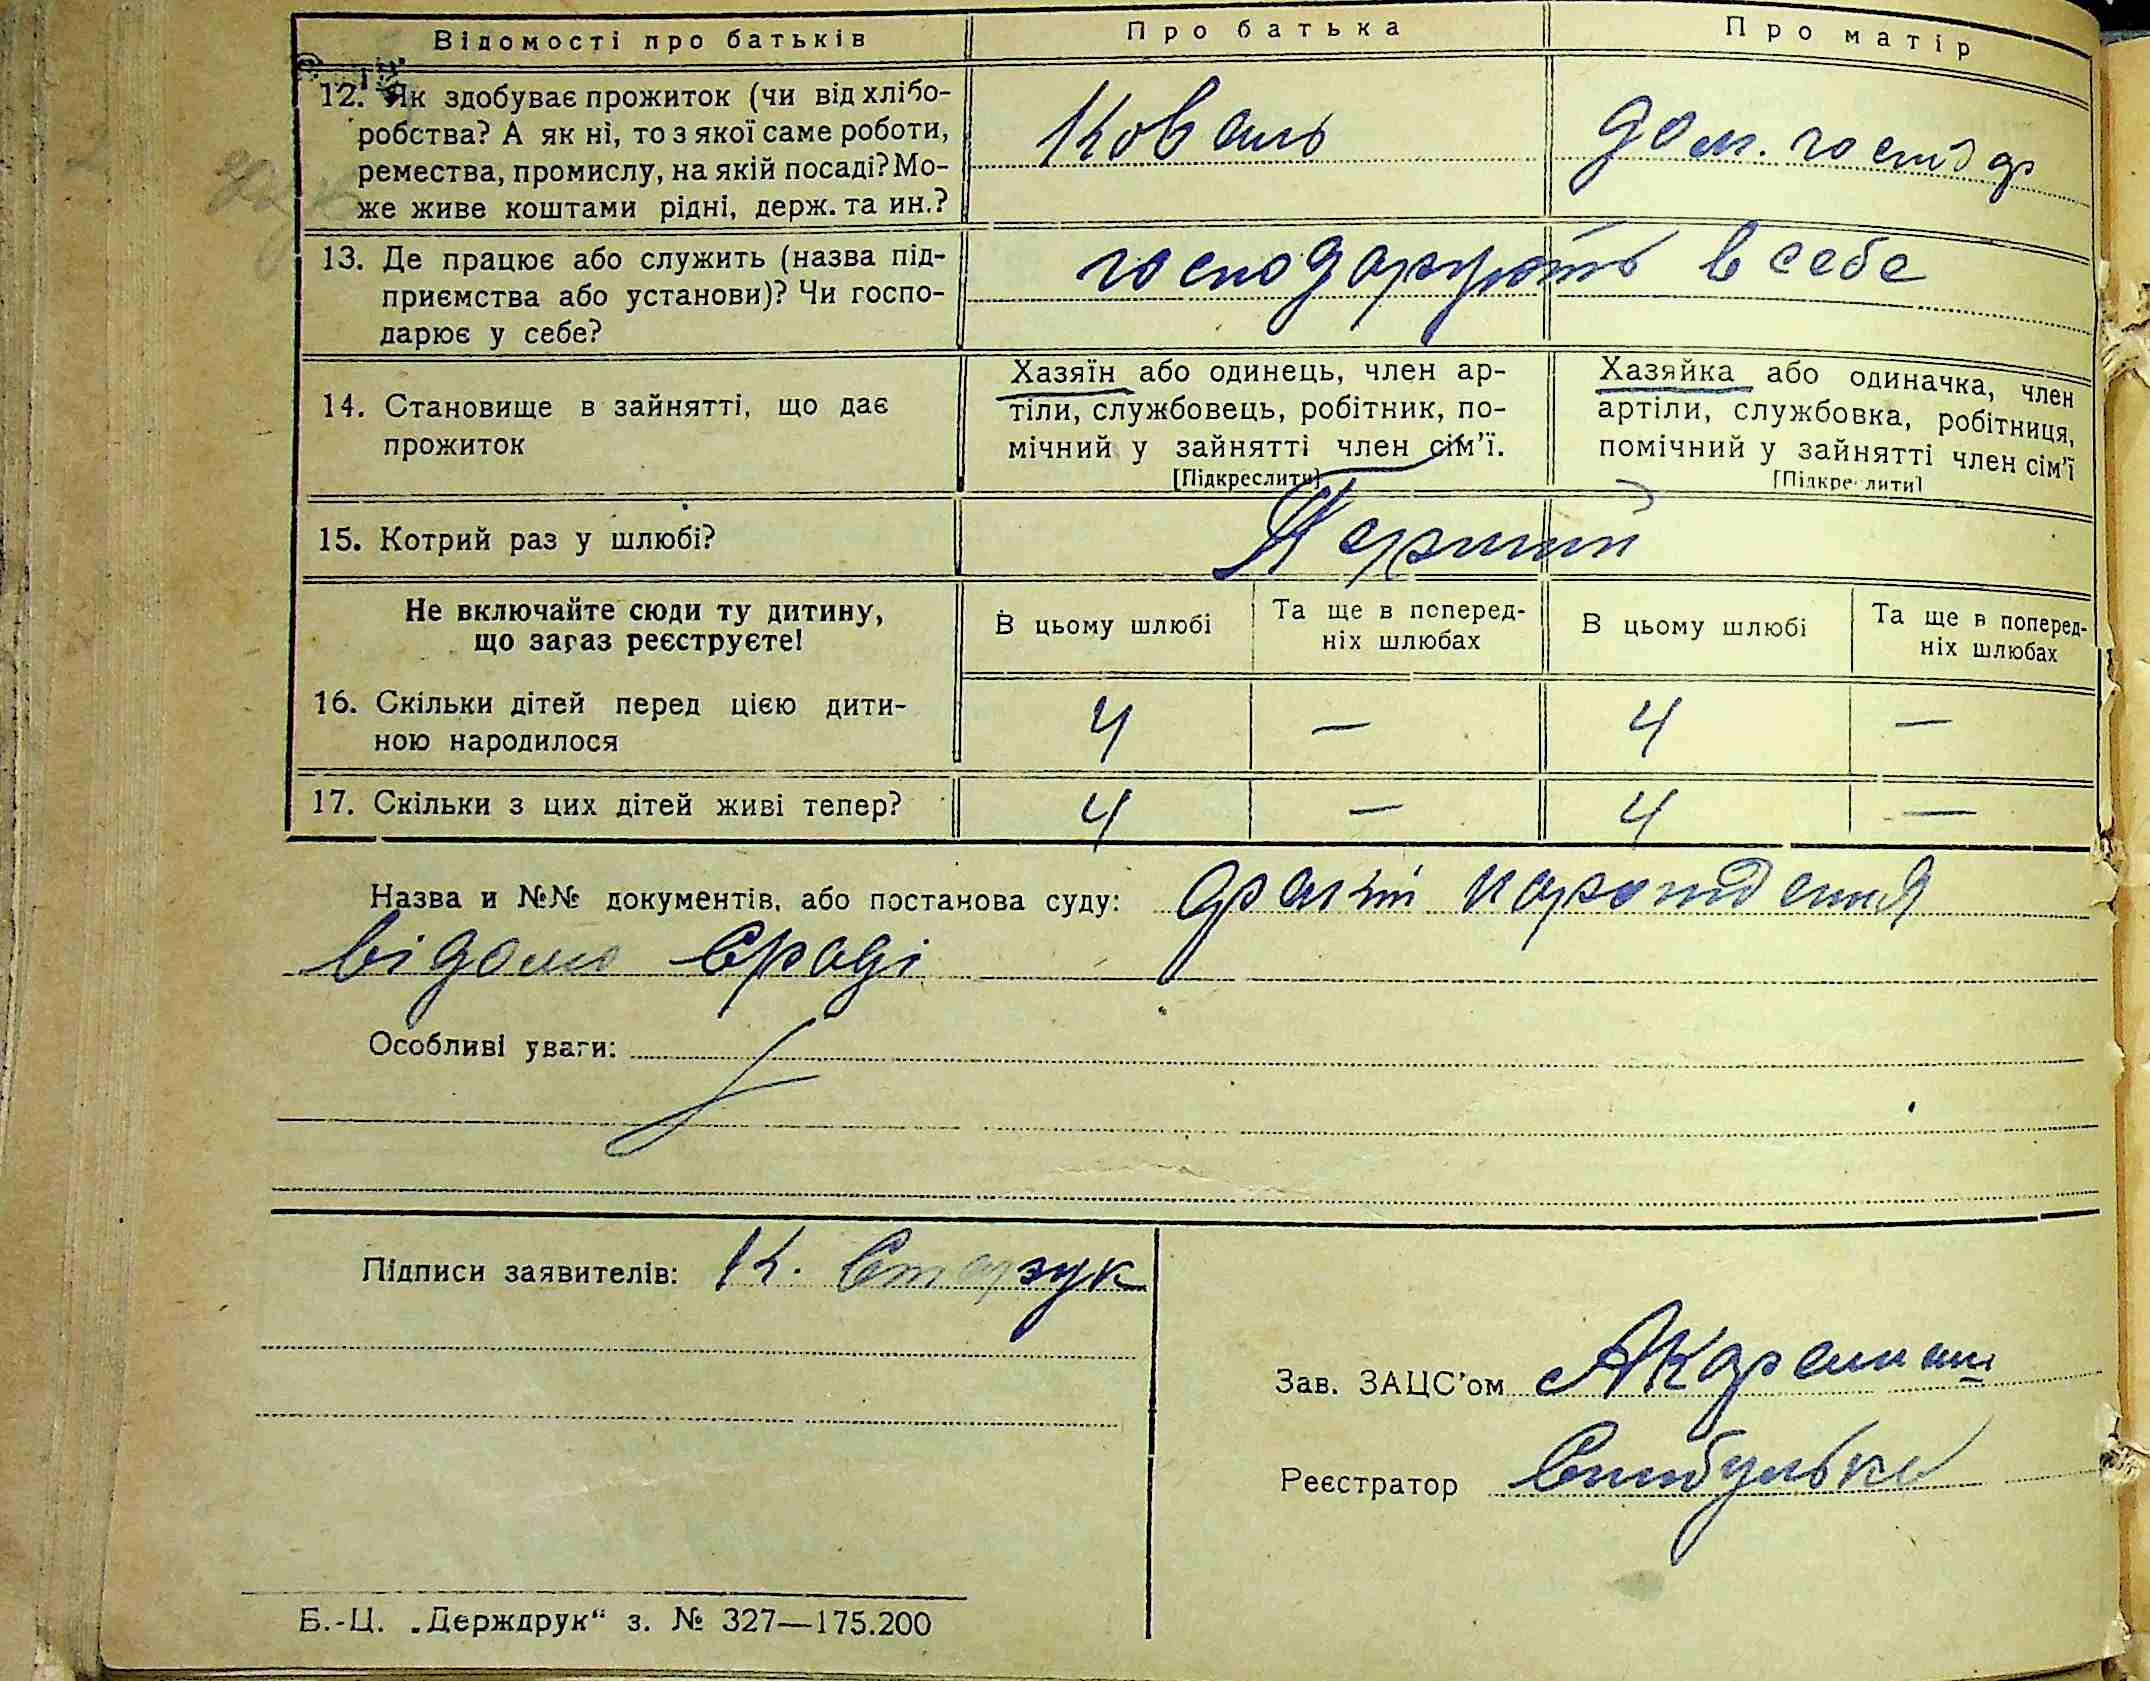 Відомості про батьків
Про батька
Про матір
12. Як здобуває прожиток (чи від хлібо-
робства? А як ні, то з якої саме роботи,
ремества, промислу, на якій посаді? Мо-
же живе коштами рідні, держ. та ин.?
Коваль
дом. господ
13. Де працює або служить (назва під-
приємства або установи)? Чи госпо-
дарює у себе?
господарують в себе
14. Становище в зайнятті, що дає
прожиток
Хазяїн або одинець, член ар-
тіли, службовець, робітник, по-
мічний у зайнятті член сім'ї.
[Підкреслити]
Хазяйка або одиначка, член
артіли, службовка, робітниця,
помічний у зайнятті член сім'ї
[Підкреслити]
15. Котрий раз у шлюбі?
Перший
Не включайте сюди ту дитину,
що зараз реєструєте!
В цьому шлюбі
Та ще в поперед-
ніх шлюбах
В цьому шлюбі
Та ще в поперед-
ніх шлюбах
16. Скільки дітей перед цією дити-
ною народилося
4 — 4 —
17. Скільки з цих дітей живі тепер?
4 — 4 —
Назва и №№ документів, або постанова суду: факт народження
відомо Сраді
Особливі уваги:
Підписи заявителів: К.
Зав. ЗАЦС'ом
Реєстратор
Б.-Ц. „Держдрук“ з. № 327—175.200